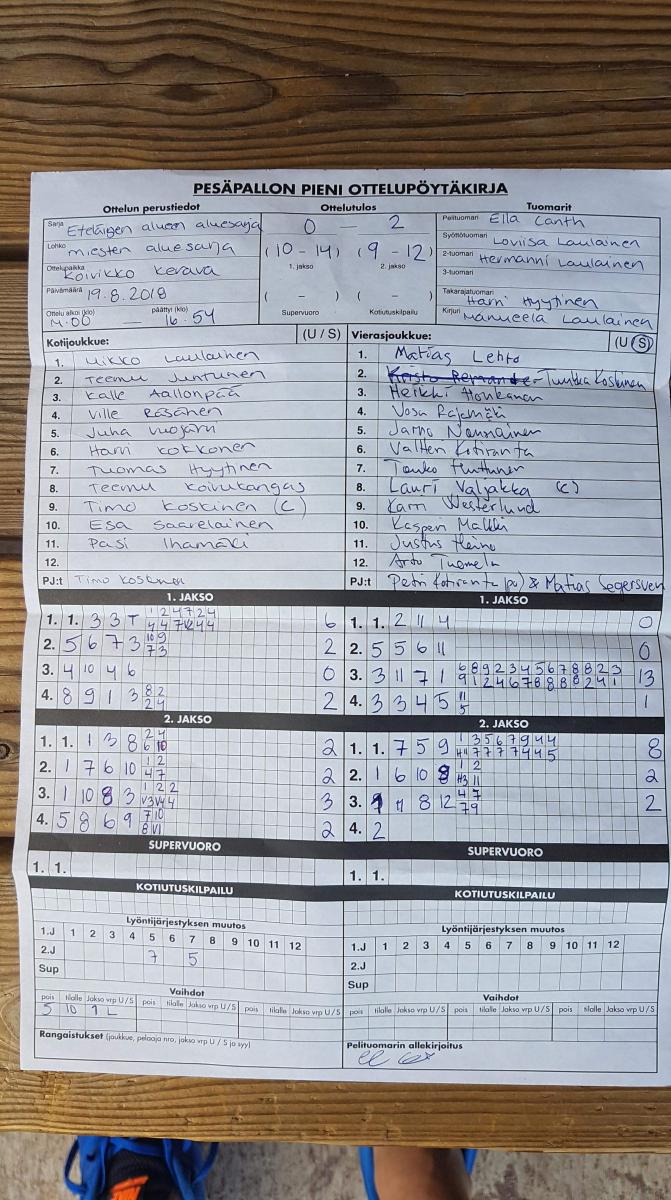 PESÄPALLON PIENI OTTELUPÖYTÄKIRJA
Ottelun perustiedot Ottelutulos Tuomarit
Sarja Eteläisen alueen aluesarja 0 – 2 Pelituomari Ella Canth
Lohko miesten aluesarja (10 – 14) (9 – 12) Syöttötuomari Loviisa Laulainen
1. jakso 2. jakso 2-tuomari Hermanni Laulainen
Ottelupaikka Koivikko Kerava 3-tuomari
Päivämäärä 19.8.2018 ( – ) ( – ) Takarajatuomari Harri Hyytinen
Ottelu alkoi (klo) 14.00 päättyi (klo) 16.54 Supervuoro Kotiutuskilpailu Kirjuri Manueela Laulainen
Kotijoukkue: (U / S) Vierasjoukkue: (U / S)
1. Mikko Laulainen 1. Matias Lehto
2. Teemu Juntunen 2. Tuukka Koskinen
3. Kalle Aallonpää 3. Heikki Honkanan
4. Ville Räsänen 4. Vosa Rajamäki
5. Juha Vuojärvi 5. Jarno Nonnainen
6. Harri Kokkonen 6. Valtteri Kotiranta
7. Tuomas Hyytinen 7. Touko Huttunen
8. Teemu Koivukangas 8. Lauri Valjakka (C)
9. Timo Koskinen (C) 9. Karri Westerlund
10. Esa Saarelainen 10. Kasperi Malkki
11. Pasi Ihamäki 11. Justus Heino
12. 12. Arto Tuomela
PJ:t Timo Koskinen PJ:t Petri Kotiranta (pv) & Matias Segersven
1. JAKSO 1. JAKSO
1. 1. 3 3 T 6 1. 1. 2 11 4 0
2. 5 6 7 3 10 9 2 2. 5 5 6 11 0
7 3
3. 4 10 4 6 0 3. 3 11 7 1 6 8 9 2 3 4 5 6 7 8 8 2 3 13
9 1 2 4 6 7 8 8 8 8 2 4 1
4. 8 9 1 3 8 2 2 4. 3 3 4 5 11 1
2 4 5
2. JAKSO 2. JAKSO
1. 1. 1 3 8 2 4 2 1. 1. 7 5 9 1 3 5 6 7 9 4 4 8
6 10 11 7 7 7 7 4 4 5
2. 1 7 6 10 1 2 2 2. 1 6 10 8 1 2 2
4 7 3 11
3. 1 10 8 3 1 2 2 3 3. 11 8 12 4 7 2
7 9
4. 5 8 6 9 7 10 2 4. 2
SUPERVUORO SUPERVUORO
1. 1. 1. 1.
KOTIUTUSKILPAILU KOTIUTUSKILPAILU
Lyöntijärjestyksen muutos Lyöntijärjestyksen muutos
1.J 1 2 3 4 5 6 7 8 9 10 11 12 1.J 1 2 3 4 5 6 7 8 9 10 11 12
2.J 7 5 2.J
Sup Sup
Vaihdot Vaihdot
pois tilalle Jakso vrp U/S pois tilalle Jakso vrp U/S pois tilalle Jakso vrp U/S pois tilalle Jakso vrp U/S pois tilalle Jakso vrp U/S pois tilalle Jakso vrp U/S
5 10 1 L
Rangaistukset (joukkue, pelaaja nro, jakso vrp U / S ja syy) Pelituomarin allekirjoitus